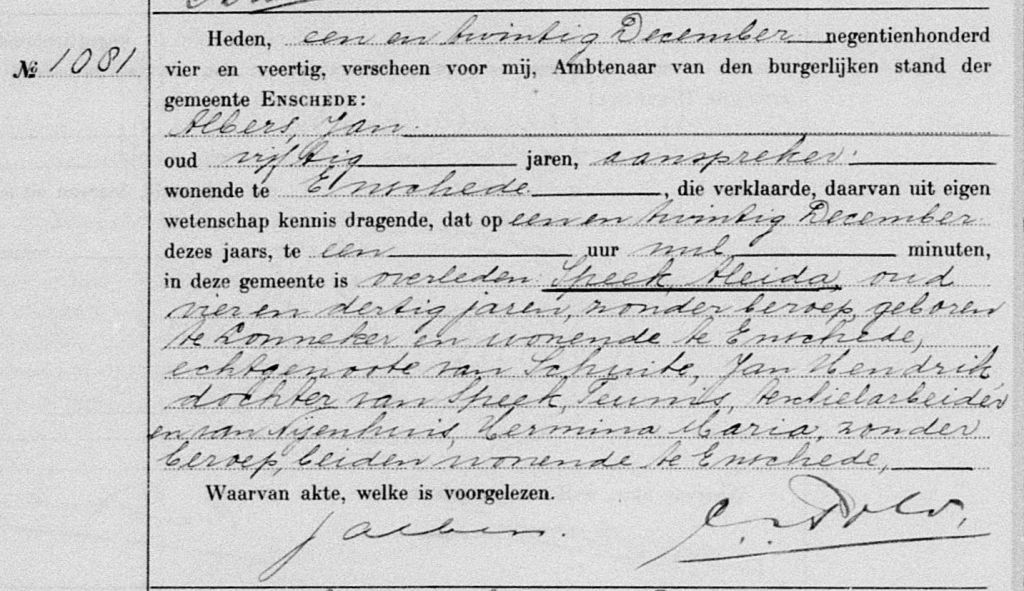 Heden, een en twintig December negentienhonderd
№ 1081
vier en veertig, verscheen voor mij, Ambtenaar van den burgerlijken stand der
gemeente ENSCHEDE:
Albers, Jan.
oud vijftig jaren, aanspreker.
wonende te Enschede, die verklaarde, daarvan uit eigen
wetenschap kennis dragende, dat op een en twintig December
dezes jaars, te een uur nul minuten,
in deze gemeente is overleden Speek, Aleida, oud
vier en dertig jaren, zonder beroep, geboren
te Lonneker en wonende te Enschede,
echtgenoote van Schuite, Jan Hendrik,
dochter van Speek, Teunis, textielarbeider
en van Nijenhuis, Hermina Maria, zonder
beroep, beiden wonende te Enschede,
Waarvan akte, welke is voorgelezen.
J Albers.